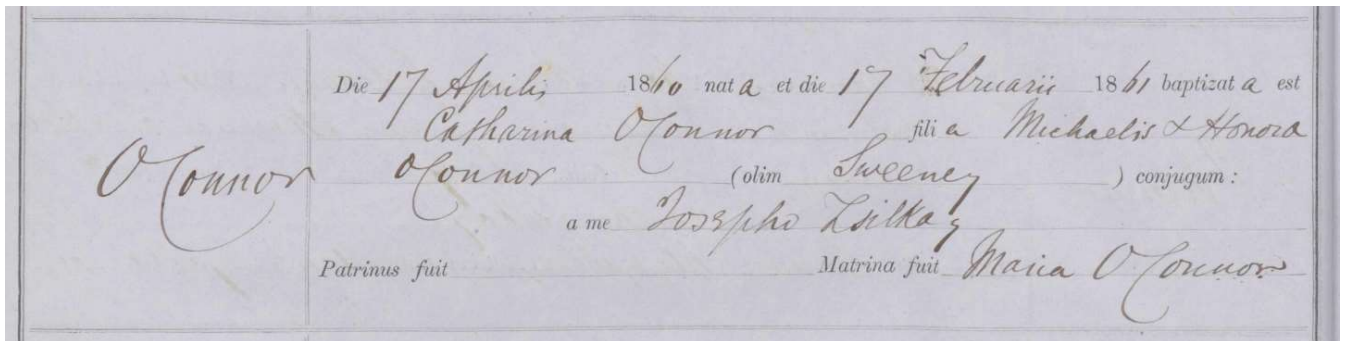 Die 17 Aprilis 1860 nata et die 17 Februarii 1861 baptizata est
Catharina O'Connor filia Michaelis & Honora
O'Connor O'Connor (olim Sweeney) conjugum:
a me Josepho Zsilkay
Patrinus fuit Matrina fuit Maria O'Connor